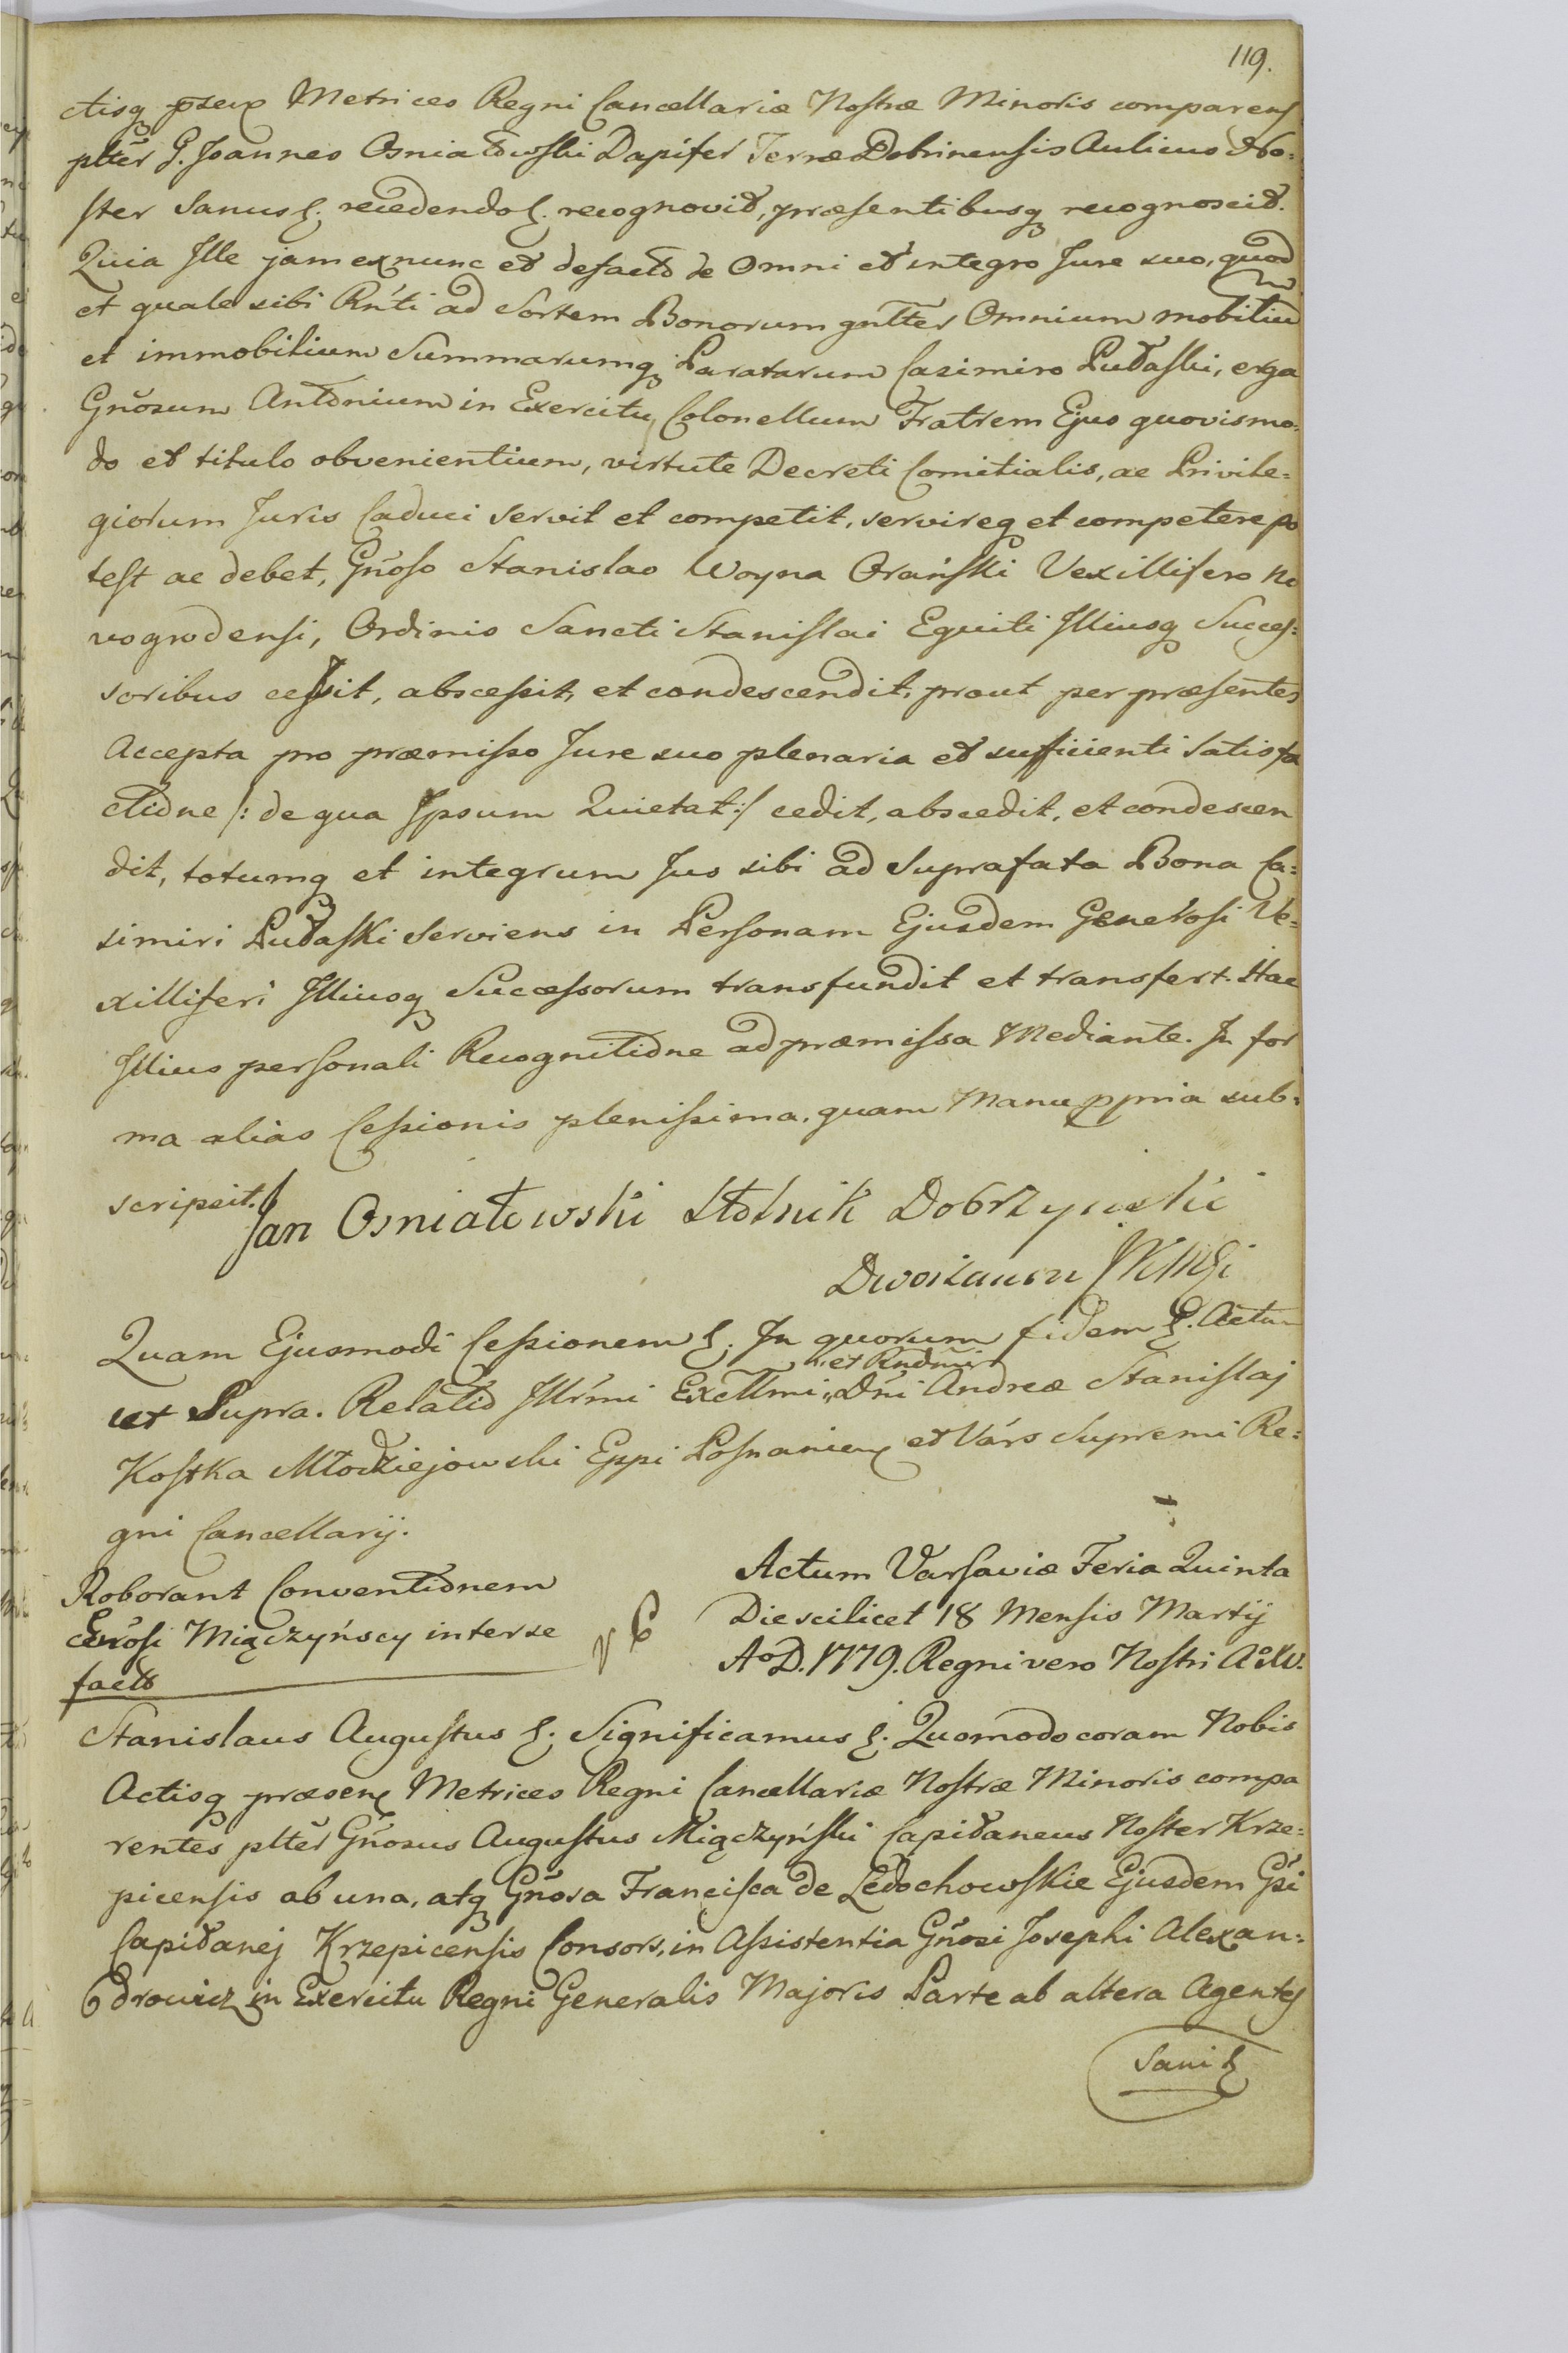 119.
ctisq pseñ Metrices Regni Cancellariæ Nostræ Minoris comparens
plter G. Joannes Osniałowski Dapifer Terræ Dobrinensis Aulicus No:
ster Sanus &. recedendo &. recognovit, præsentibusq recognoscit.
Quia Ille jam exnunc et defacto de Omni et integro Jure suo, quod
et quale sibi Rñti ad Sortem Bonorum gnlter Omnium mobiliũ
et immobilium Summarumq Paratarum Casimiro Pułaski, erga
Gñosum Antonium in Exercitu Colonellum Fratrem Ejus quovismo:
do et titulo obvenientium, virtute Decreti Comitialis, ac Privile=
giorum Juris Caduci servit et competit, servireq et competere po
test ac debet, Gñoso Stanislao Woyna Orański Vexillifero No
vogrodensi, Ordinis Sancti Stanislai Equiti Illiusq Succes=
soribus cessit, abscessit, et condescendit, prout per præsentes
Accepta pro præmisso Jure suo plenaria et sufficienti Satisfa
ctione /: de qua Ipsum Quietat :/ cedit, abscedit, et condescen
dit, totumq et integrum Jus sibi ad Suprafata Bona Ca=
simiri Pułaski Serviens in Personam Ejusdem Generosi Ve=
xilliferi Illiusq Successorum transfundit et transfert. Hac
Illius personali Recognitione ad præmissa Mediante. In for
ma alias Cessionis plenissima, quam Manu ppria sub=
scripsit.
Jan Osniałowski Stolnik Dobrzynski
Dworzanin JKMCi
Quam Ejusmodi Cessionem &. In quorum fidem &. Actum
ut Supra. Relatio Illr̃mi Excllmi et Rndmi Dñi Andreæ Stanislaj
Kostka Młodziejowski Eppi Posnanieñ et Vars Supremi Re=
gni Cancellarij.
Roborant Conventionem
Gñosi Miączyńscy inter se
facto
Actum Varsaviæ Feria Quinta
Die scilicet 18 Mensis Martij
AºD. 1779. Regni vero Nostri Aº XV.
Stanislaus Augustus &. Significamus &. Quomodo coram Nobis
Actisq præseñ Metrices Regni Cancellariæ Nostræ Minoris compa
rentes plter Gñosus Augustus Miączyński Capitaneus Noster Krze=
picensis ab una, atq Gñosa Francisca de Ledochowskie Ejusdem Gsi
Capitanej Krzepicensis Consors, in Assistentia Gñosi Josephi Alexan=
drowicz in Exercitu Regni Generalis Majoris Parte ab altera Agentes
Sani &